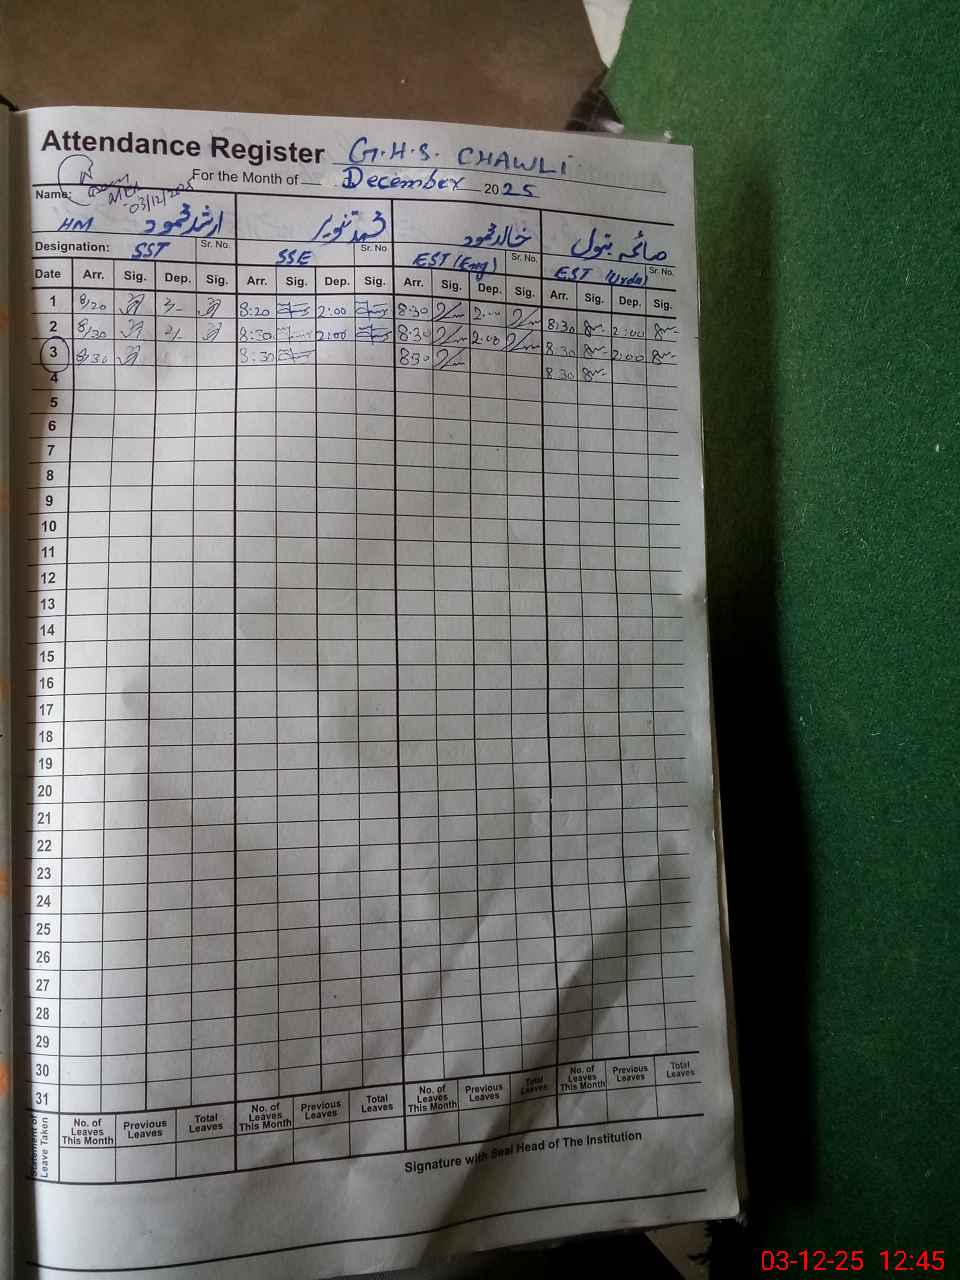 Attendance Register G.H.S. CHAWLi
For the Month of December 2025
03/12/2025
Name: ارشد محمود محمد تنویر خالد محمود صائمہ بتول
HM
Designation: SST Sr. No. SSE Sr. No. EST (Eng) Sr. No. EST (Urdu) Sr. No.
Date Arr. Sig. Dep. Sig. Arr. Sig. Dep. Sig. Arr. Sig. Dep. Sig. Arr. Sig. Dep. Sig.
1 8/20 8:20 2:00 8:30 2:00 8:30 2:00
2 8/30 8:30 2:00 8:30 2:00 8:30 2:00
3 8/30 8:30 8:30 8:30
4
5
6
7
8
9
10
11
12
13
14
15
16
17
18
19
20
21
22
23
24
25
26
27
28
29
30
31
Statement of Leave Taken
No. of Leaves This Month Previous Leaves Total Leaves No. of Leaves This Month Previous Leaves Total Leaves No. of Leaves This Month Previous Leaves Total Leaves No. of Leaves This Month Previous Leaves Total Leaves
Signature with Seal Head of The Institution
03-12-25 12:45